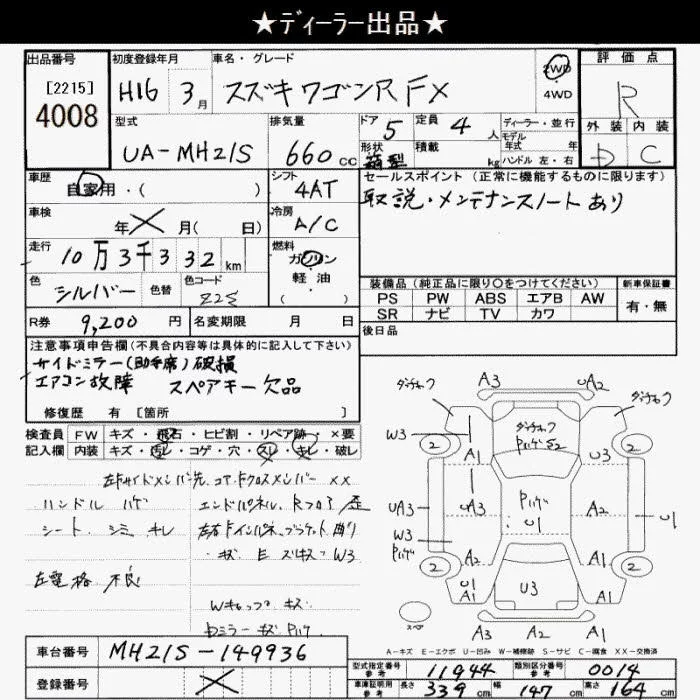 ★ディーラー出品★
出品番号 初度登録年月 車名・グレード 2WD 評価点
[2215] H16 3月 スズキワゴンR FX 4WD R
4008
型式 排気量 ドア 5 定員 4人 ディーラー・並行 外装 内装
UA-MH21S 660cc 形状 箱型 積載 kg モデル年式 年式 ハンドル 左・右 D C
車歴 自家用・( ) シフト 4AT セールスポイント(正常に機能するものに限ります)
車検 年 × 月( 日) 冷房 A/C 取説・メンテナンスノートあり
走行 10万3千332km 燃料 ガソリン
軽油
( )
色 シルバー 色替 色コード Z2S 装備品(純正品に限り〇をつけてください) 新車保証書
PS PW ABS エアB AW 有・無
R券 9,200円 名変期限 月 日 SR ナビ TV カワ
注意事項申告欄(不具合内容等は具体的に記入して下さい) 後日品
サイドミラー(助手席)破損
エアコン故障 スペアキー欠品
修復歴 有 [箇所 ]
検査員 FW キズ・飛石・ヒビ割・リペア跡・×要
記入欄 内装 キズ・汚レ・コゲ・穴・スレ・キレ・破レ
左Fサイドメンバー先 コアサポ クロスメンバー ××
ハンドル ハゲ エンドパネル Rフロア 歪
シート シミ キレ 左右Fインパネ ブラケット 曲り
・キズ E ズキズ・W3
左電格 不良
Wキャップ キズ
Dミラー キズ Pハゲ
A3 UA2
W3 A1 U3
UA3 UA3 A2 U
W3 Pハゲ A2 A1
Pハゲ U1
U A1 U3 A1
A3 A2 A1
2 2 2 2
スペア
A-キズ E-エクボ U-凹み W-補修跡 S-サビ C-腐食 XX-交換済
車台番号 MH21S-149936
登録番号 ×
型式指定番号 参考 11944 類別区分番号 参考 0014
車庫証明用 参考 長さ 339cm 幅 147cm 高さ 164cm